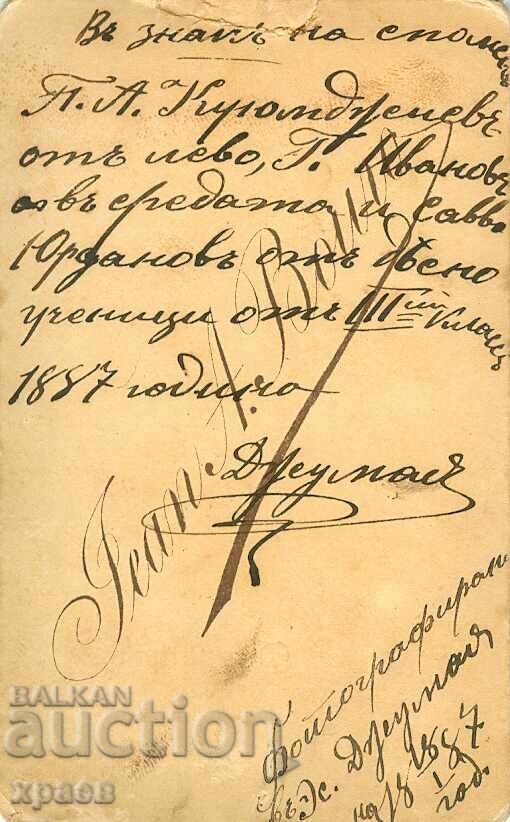 Въ знакъ на споменъ
П. А. Куюмджиевъ
отъ лево, Г. Ивановъ
въ средата и Савва
Юрдановъ отъ дѣсно
ученици отъ III ий класъ
1887 година
Джумая
Jean A.
Фотографиран
въ Ес. Джумая
на 18 1887
I год.
BALKAN
auction
храсв